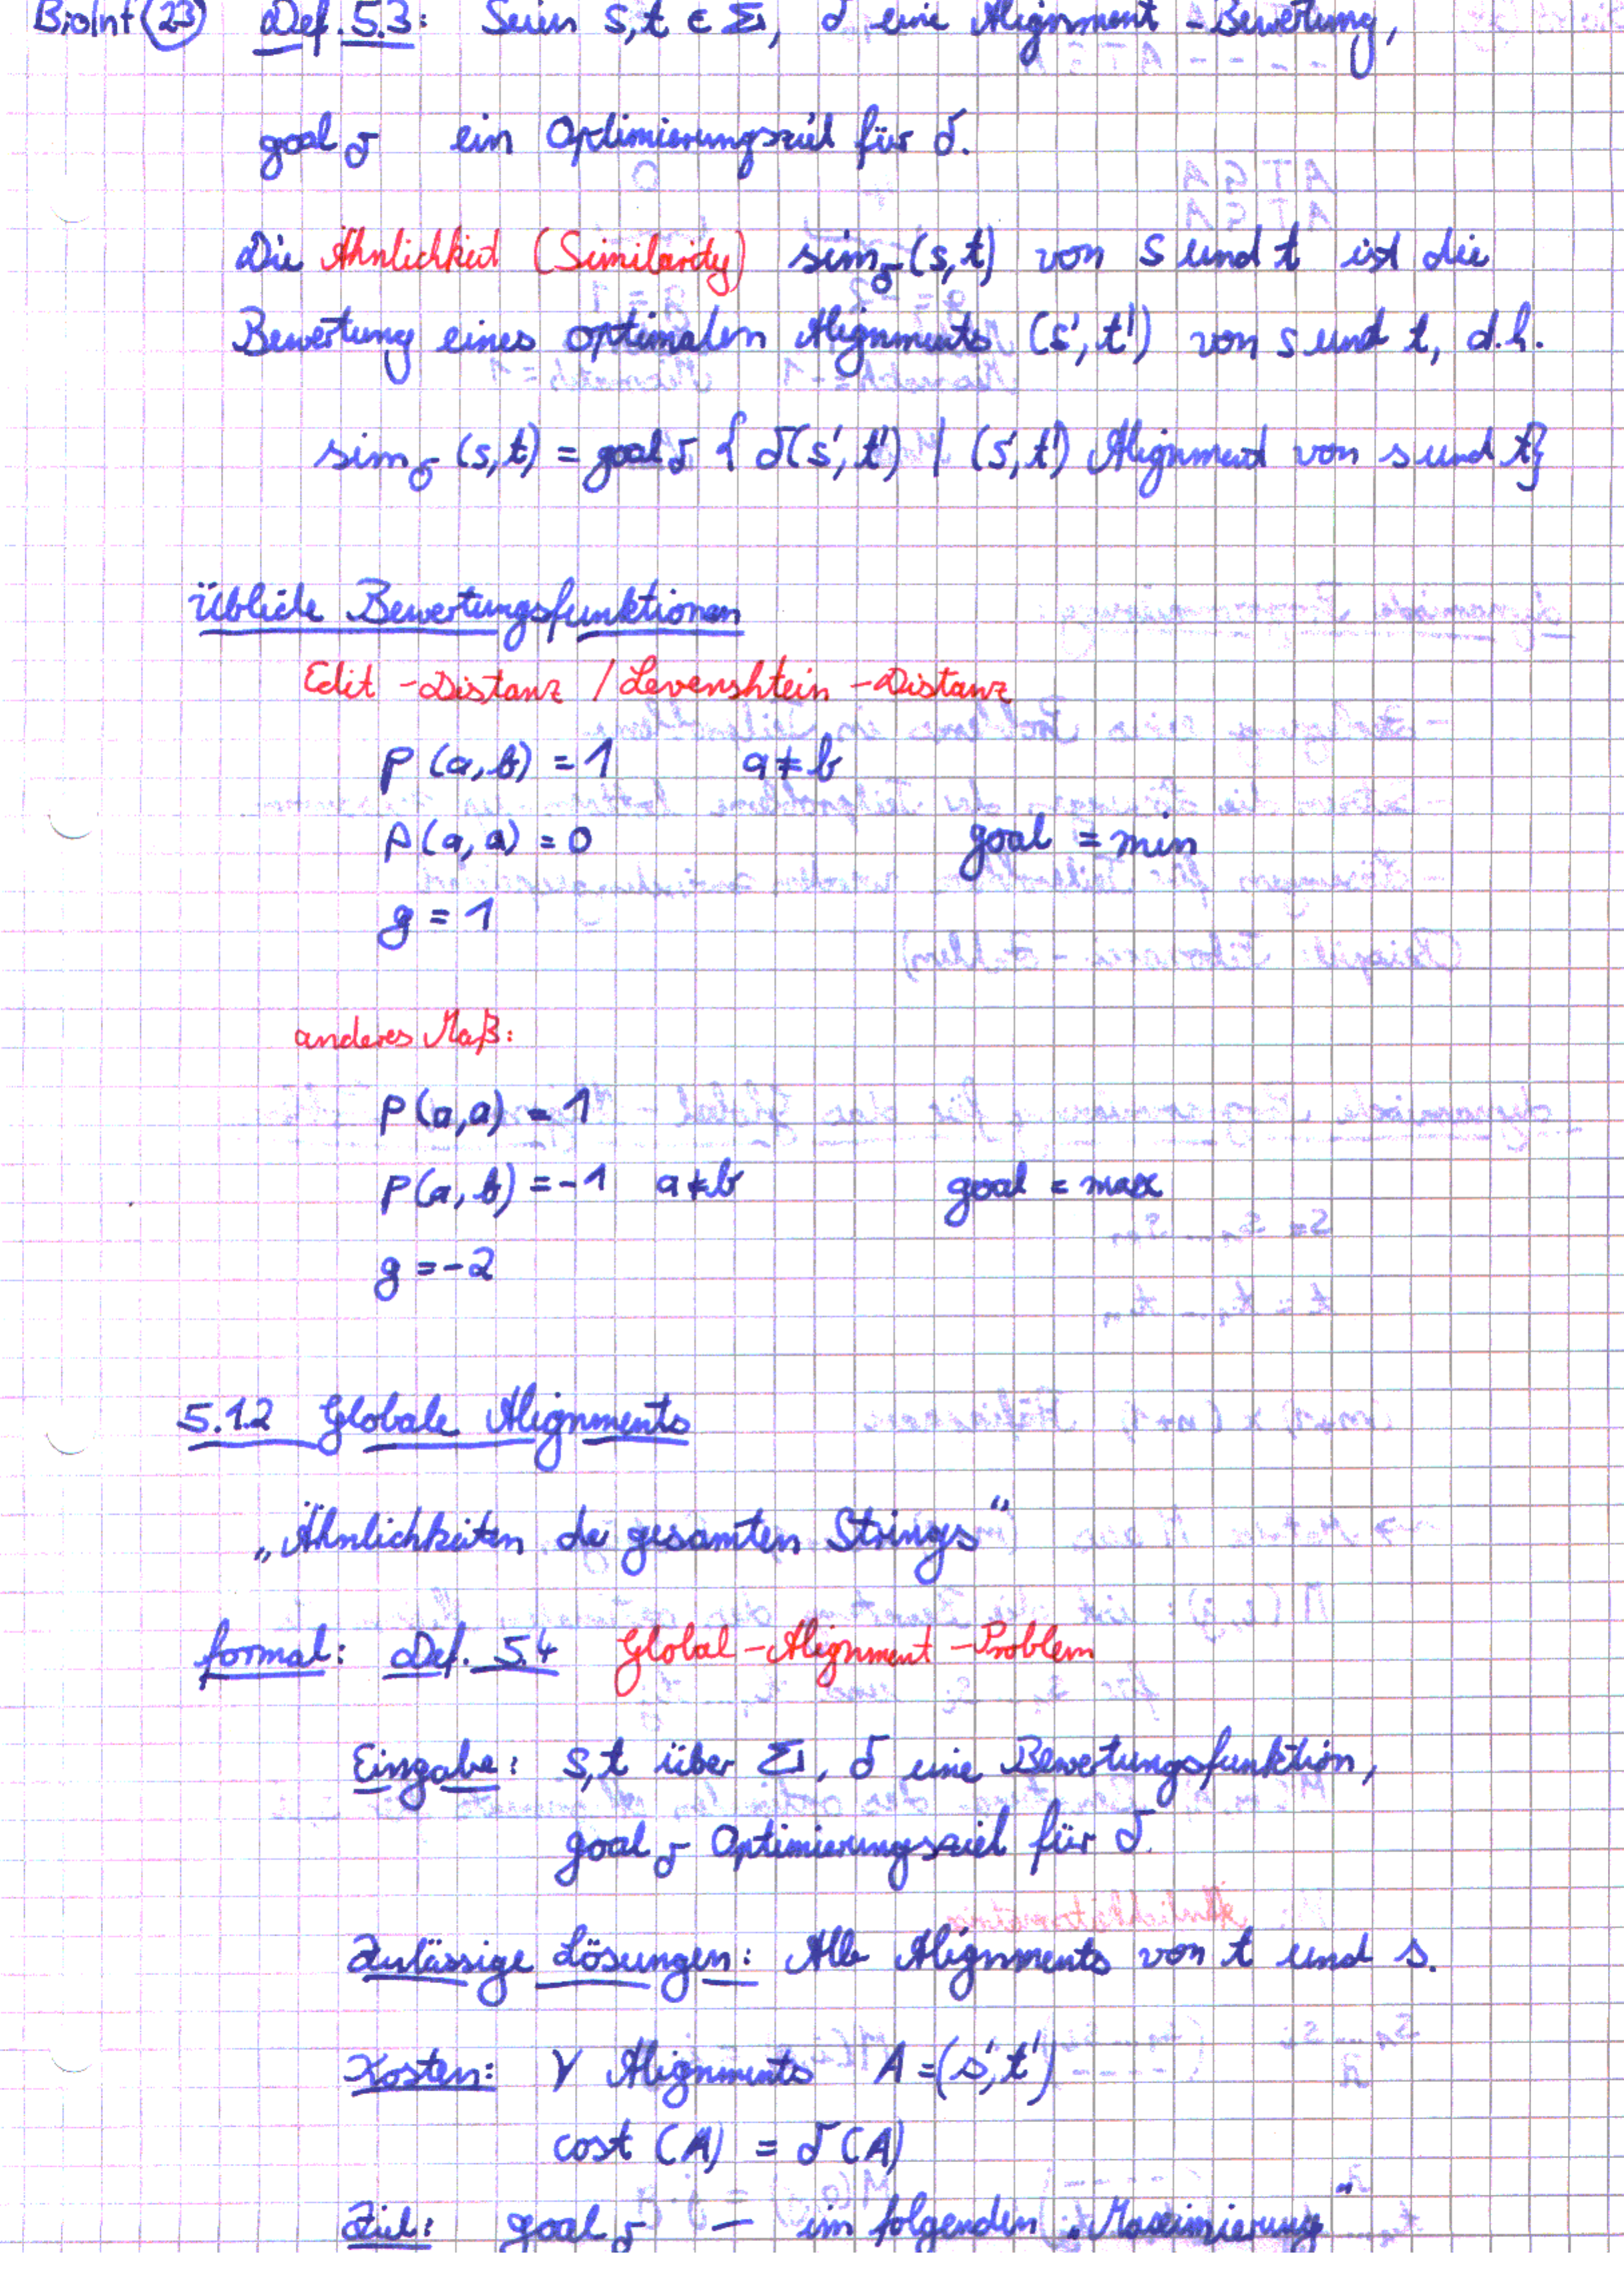 BioInf (23) Def. 5.3: Seien s,t ∈ Σ, δ eine Alignment-Bewertung,
goal δ ein Optimierungsziel für δ.
Die Ähnlichkeit (Similarity) sim δ (s,t) von s und t ist die
Bewertung eines optimalen Alignments (s', t') von s und t, d.h.
sim δ (s,t) = goal δ { δ(s', t') | (s', t') Alignment von s und t}
Übliche Bewertungsfunktionen
Edit-Distanz / Levenshtein-Distanz
p(a,b) = 1 a ≠ b
p(a,a) = 0 goal = min
g = 1
anderes Maß:
p(a,a) = 1
p(a,b) = -1 a ≠ b goal = max
g = -2
5.1.2 Globale Alignments
„Ähnlichkeiten der gesamten Strings“
formal: Def. 5.4 Global-Alignment-Problem
Eingabe: s,t über Σ, δ eine Bewertungsfunktion,
goal δ Optimierungsziel für δ.
Zulässige Lösungen: Alle Alignments von t und s.
Kosten: ∀ Alignments A = (s', t')
cost (A) = δ (A)
Ziel: goal δ — im folgenden „Maximierung“